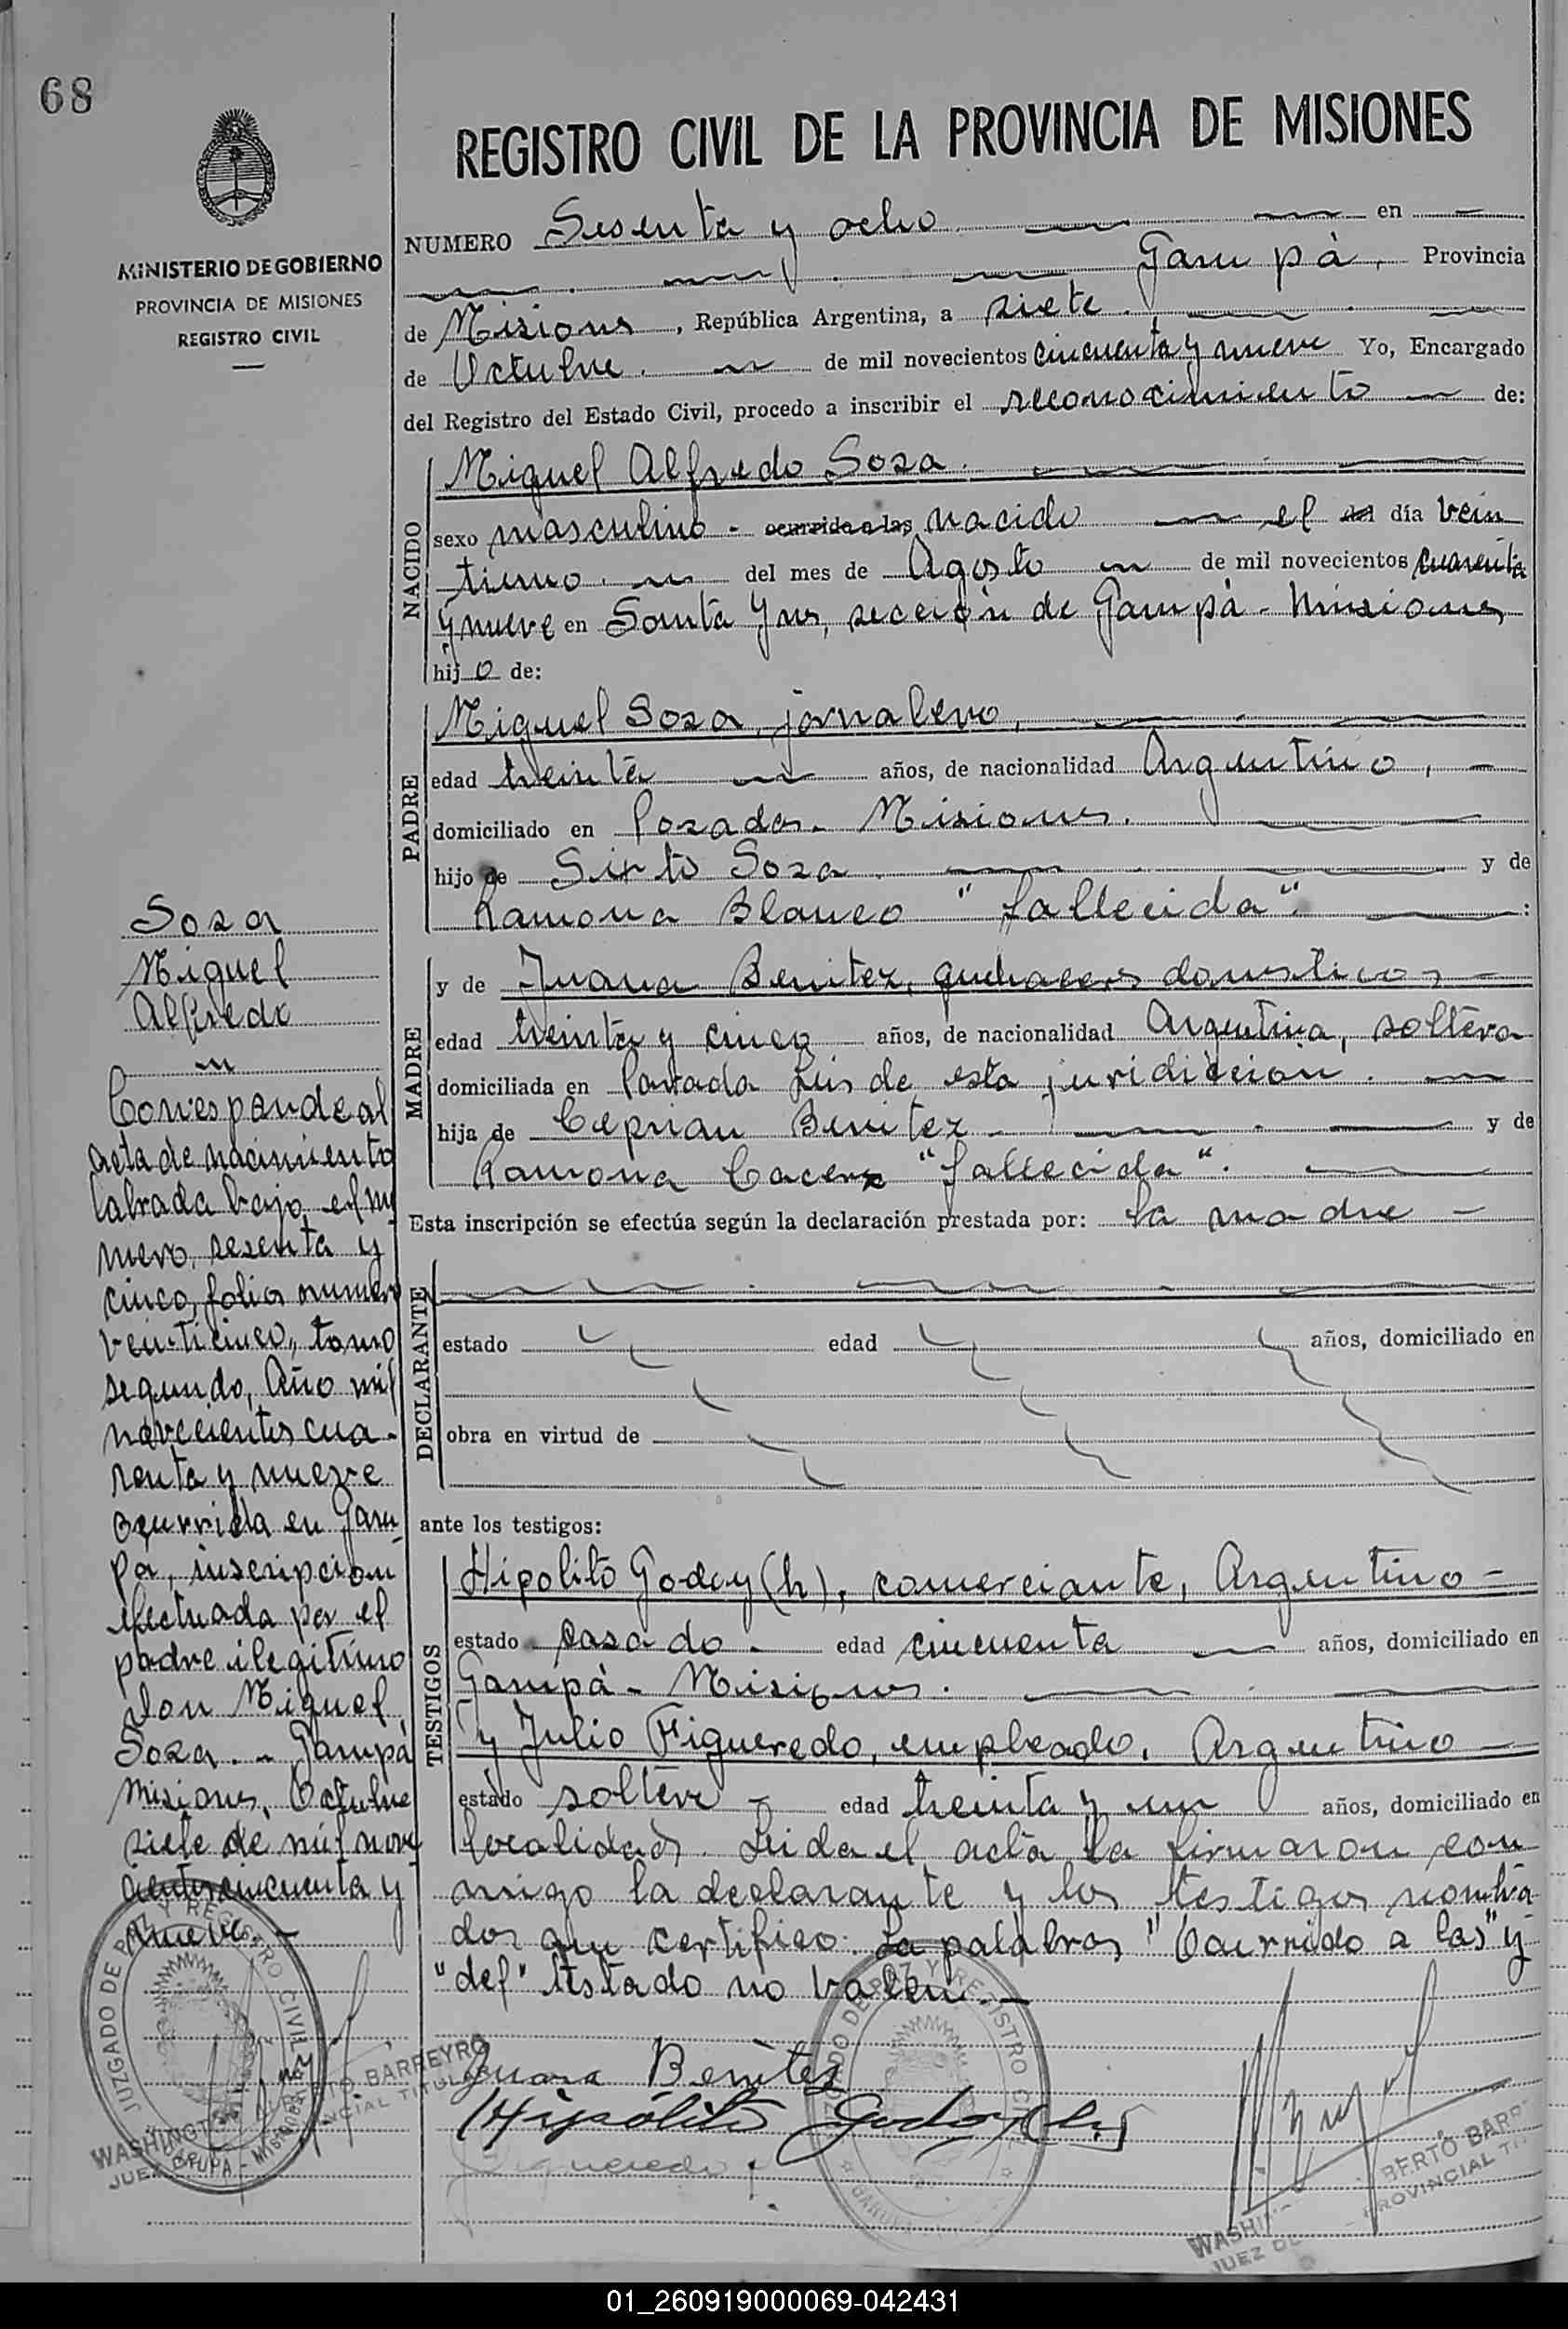 68
REGISTRO CIVIL DE LA PROVINCIA DE MISIONES
MINISTERIO DE GOBIERNO
PROVINCIA DE MISIONES
REGISTRO CIVIL
NUMERO Sesenta y ocho en
Garupá, Provincia
de Misiones, República Argentina, a siete
de Octubre. de mil novecientos cincuenta y nueve Yo, Encargado
del Registro del Estado Civil, procedo a inscribir el reconocimiento de:
NACIDO
Miguel Alfredo Sosa.
sexo masculino - ocurrida a las nacido el del día vein
tiuno. del mes de Agosto de mil novecientos cuarenta
y nueve en Santa Ynes, sección de Garupá - Misiones
hijo de:
PADRE
Miguel Sosa, jornalero,
edad treinta años, de nacionalidad Argentino,
domiciliado en Posadas. Misiones.
hijo de Sixto Sosa. y de
Ramona Blanco "fallecida".
MADRE
y de Juana Benitez, quehaceres domesticos
edad treinta y cinco años, de nacionalidad Argentina, soltera
domiciliada en Parada Leis de esta juridicción.
hija de Ceprian Benitez y de
Ramona Cacere "fallecida".
Esta inscripción se efectúa según la declaración prestada por: la madre
DECLARANTE
estado edad años, domiciliado en
obra en virtud de
ante los testigos:
TESTIGOS
Hipolito Godoy (h), comerciante, Argentino
estado casado edad cincuenta años, domiciliado en
Garupá - Misiones.
y Julio Figueredo, empleado, Argentino
estado soltero edad treinta y un años, domiciliado en
localidad. Leida el acta la firmaron con
migo la declarante y los testigos nombra
dos que certifico. La palabras "Ocurrido a las" y
"del" testado no valen.
Sosa
Miguel
Alfredo
Corresponde al
acta de nacimiento
labrada bajo el nu
mero sesenta y
cinco, folio numero
veinticinco, tomo
segundo, Año mil
novecientos cua-
renta y nueve
ocurrida en Garu
pá, inscripcion
efectuada por el
padre ilegitimo
don Miguel
Sosa. - Garupá
Misiones, Octubre
siete de mil nove
cientos cincuenta y
nueve. -
JUZGADO DE PAZ Y REGISTRO CIVIL
GARUPA - MISIONES
WASHINGTON ALBERTO BARREYRO
JUEZ PROVINCIAL TITULAR
Juana Benitez
Hipólito Godoy (h)
Figueredo
JUZGADO DE PAZ Y REGISTRO CIVIL
BERTO BARR
PROVINCIAL TI
WASHI
JUEZ DE
01_260919000069-042431